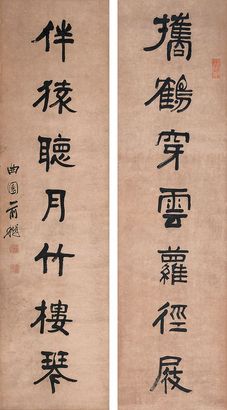 攜鶴穿雲蘿徑屐
伴猿聽月竹樓琴
曲園俞樾